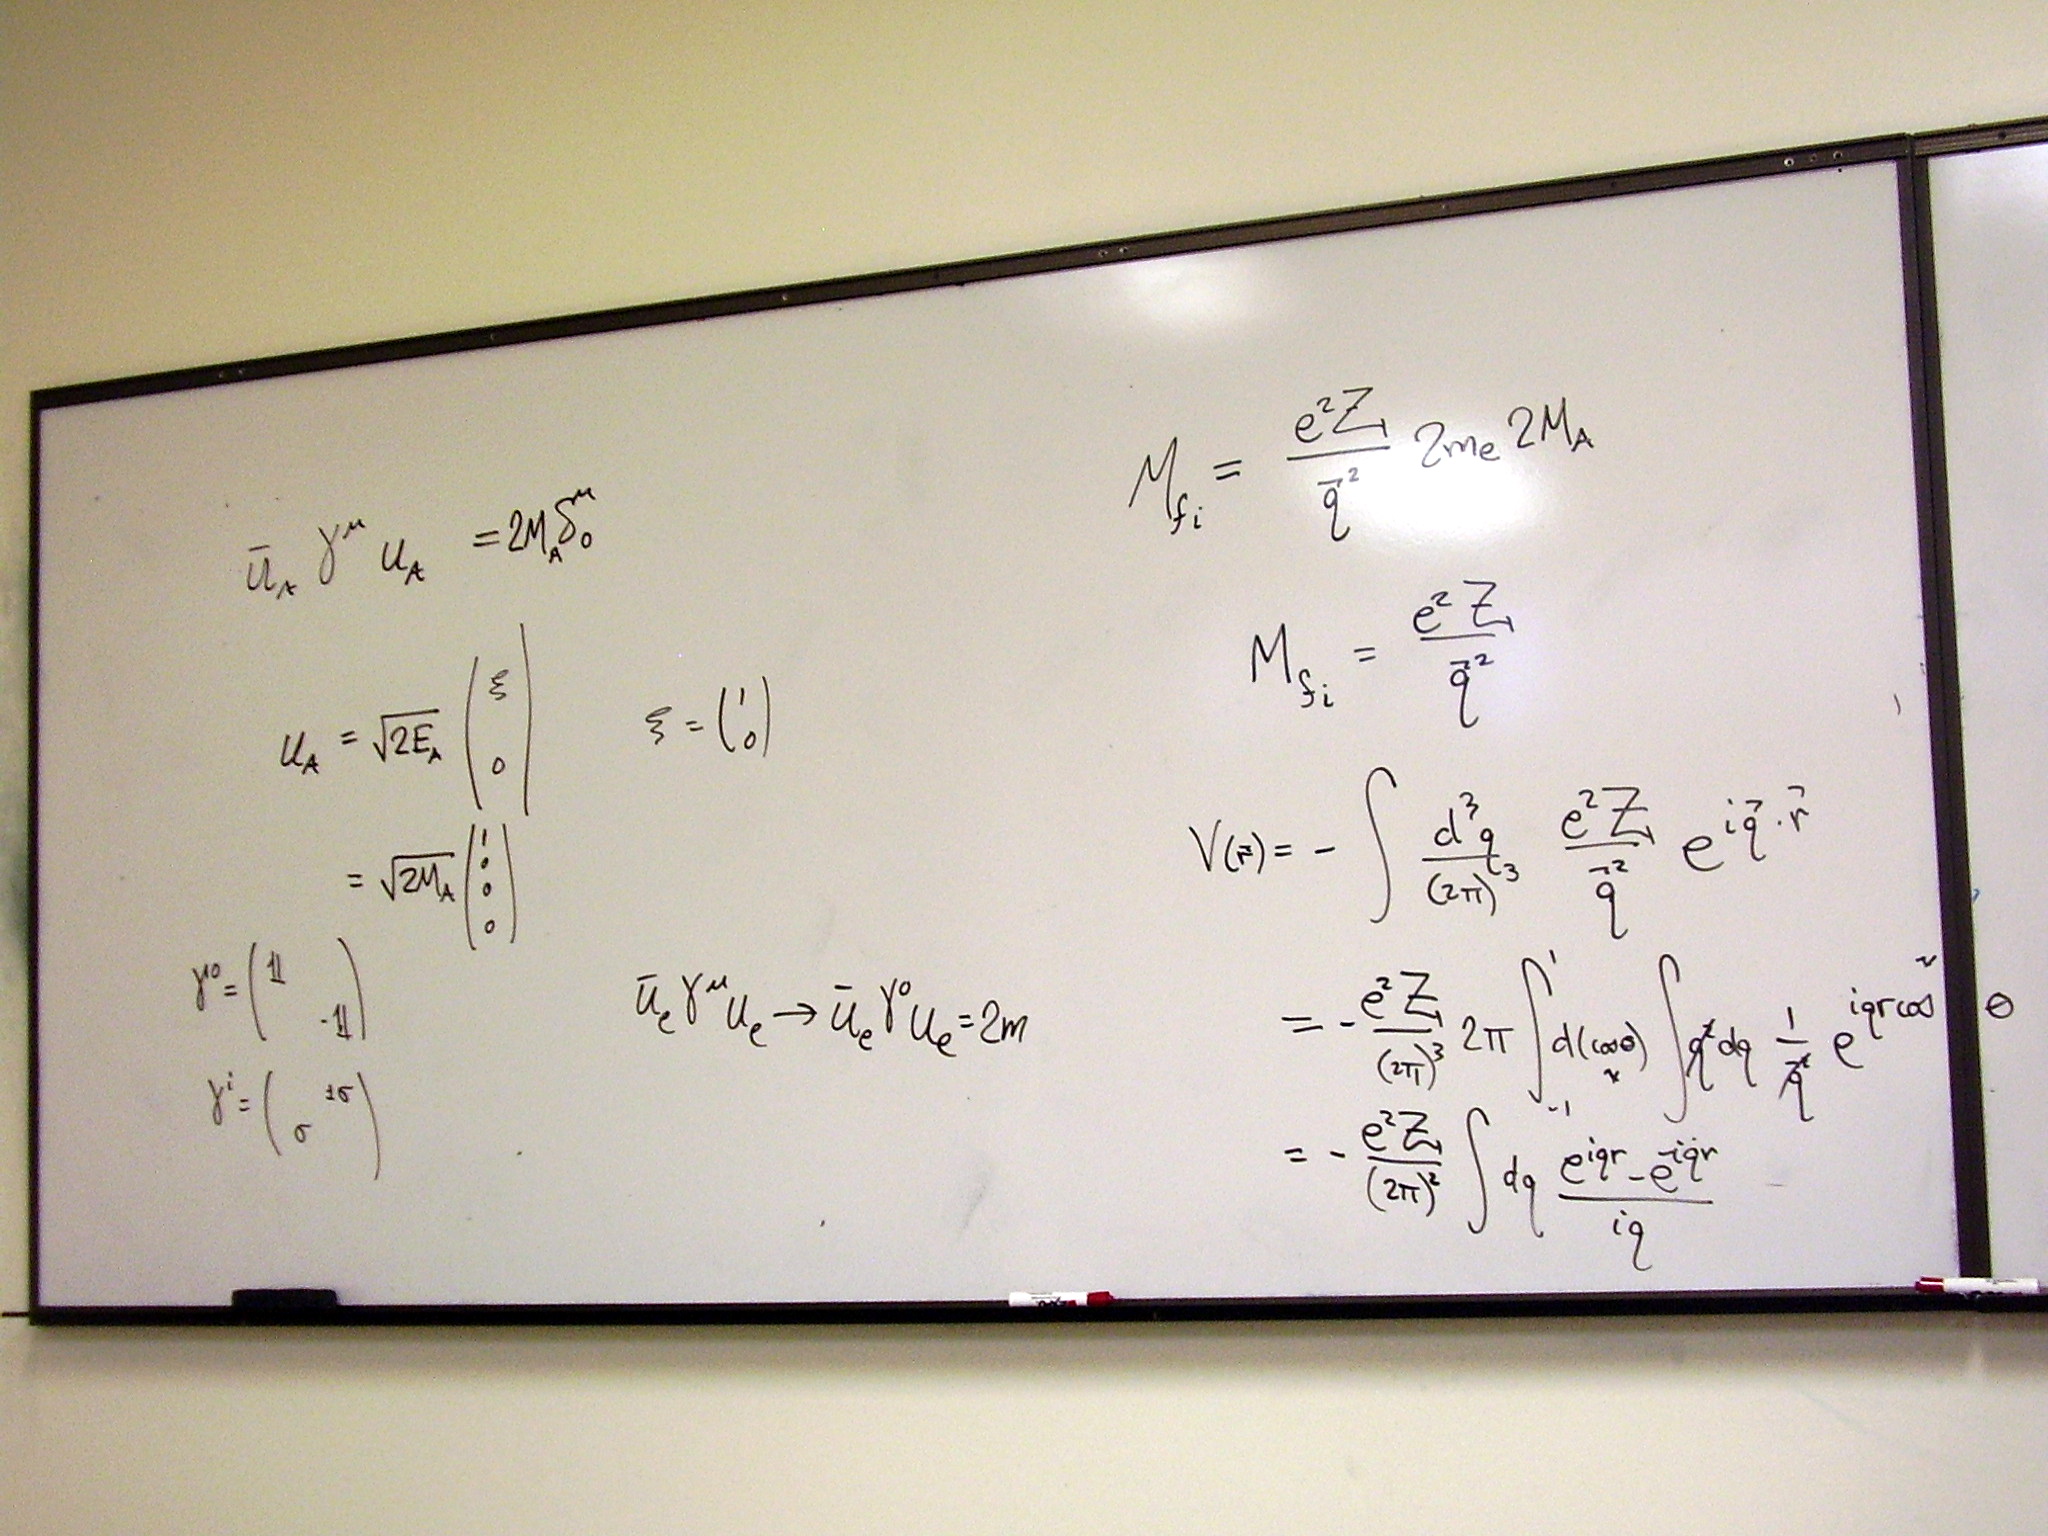 ū_A γ^μ u_A = 2M_A δ^μ_0
u_A = √(2E_A) (ξ 0)    ξ = (1 0)
= √(2M_A) (1 0 0 0)
γ^0 = (𝟙 -𝟙)
ū_e γ^μ u_e → ū_e γ^0 u_e = 2m
γ^i = (±σ σ)
M_fi = e²Z / q⃗² 2m_e 2M_A
M_fi = e²Z / q⃗²
V(r⃗) = - ∫ d³q / (2π)³ e²Z / q⃗² e^{i q⃗·r⃗}
= - e²Z / (2π)³ 2π ∫_{-1}^{1} d(cosθ) ∫ q² dq 1 / q⃗² e^{iqr cosθ}
= - e²Z / (2π)² ∫ dq (e^{iqr} - e^{-iqr}) / iq